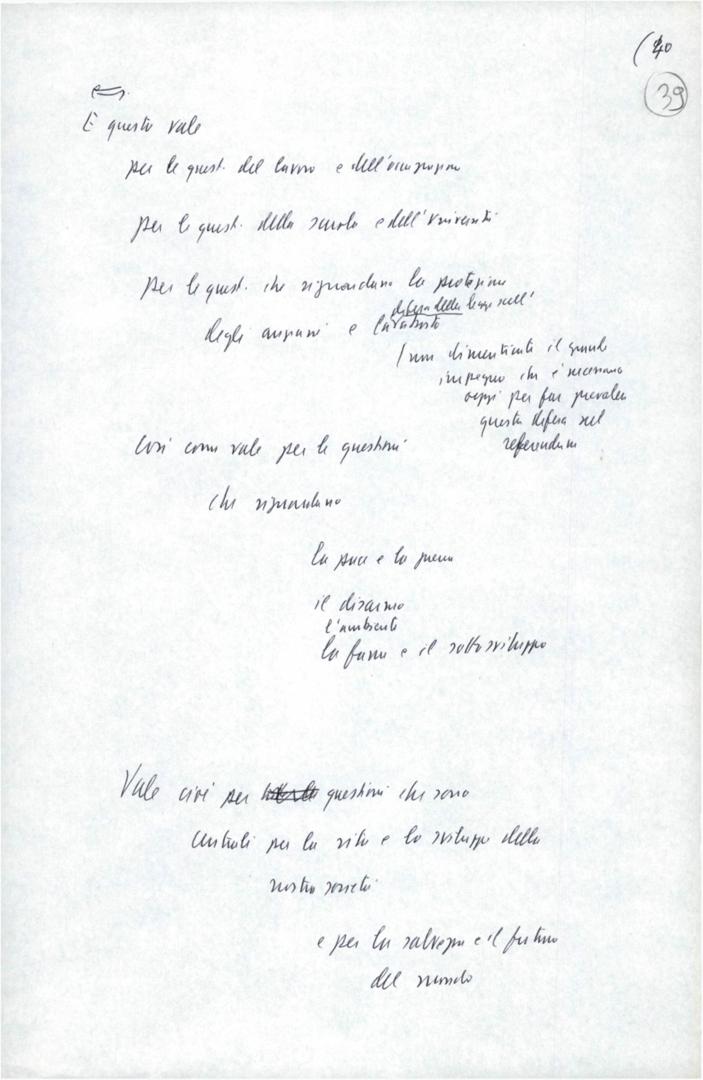 (40
39
E questo vale
per le quest. del lavoro e dell'occupazione
per le quest. della scuola e dell'Università
per le quest. che riguardano la protezione
difesa della legge sull'
degli anziani e l'aborto
(non dimenticate il grande
impegno che è necessario
oggi per far prevalere
questa difesa nel
referendum
Così come vale per le questioni
che riguardano
la pace e la guerra
il disarmo
l'ambiente
la fame e il sottosviluppo
Vale cioè per questioni che sono
centrali per la vita e lo sviluppo della
nostra società
e per la salvezza e il futuro
del mondo